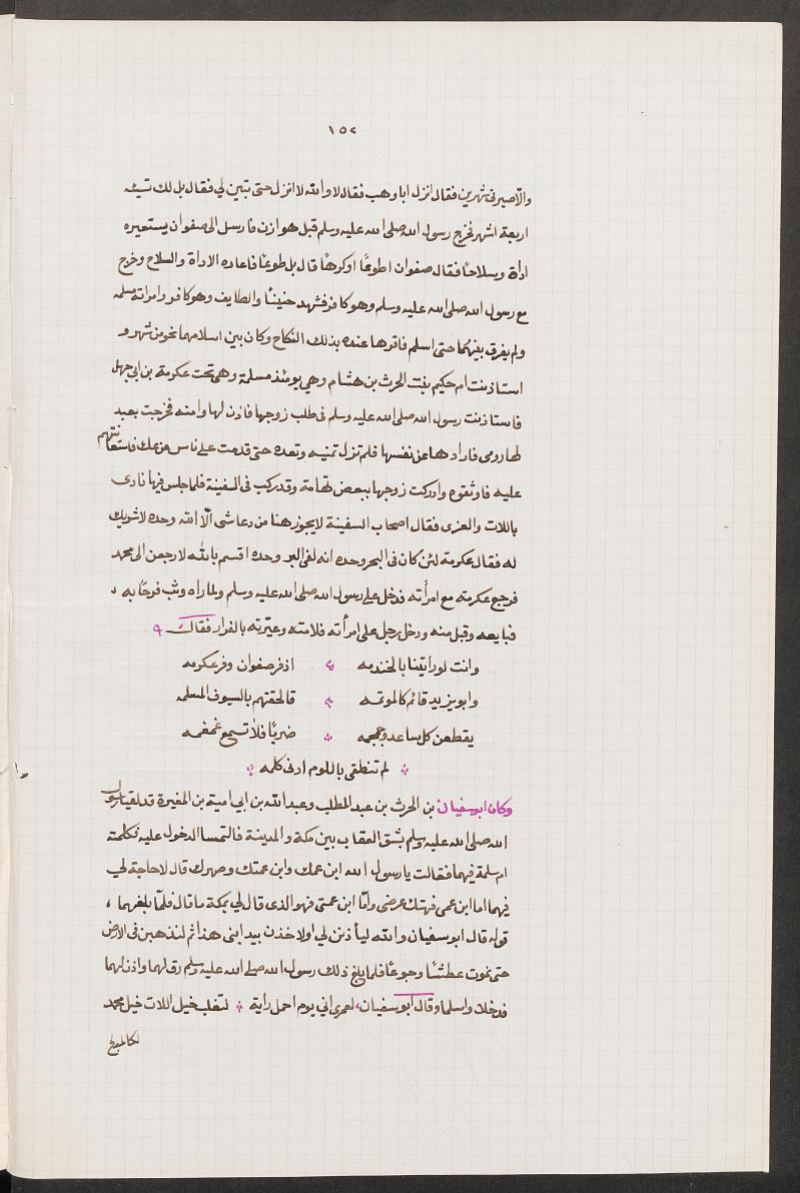 ١٥٢
والا صيرني شهرين فقال انزل ابا وهب فقال لا والله لا انزل حتى تبين لي فقال بل لك تسيير
اربعة اشهر فخرج رسول الله صلى الله عليه وسلم قبل هوازن فارسل الى صفوان يستعيره
اداة وسلاحًا فقال صفوان اطوعًا او كرهًا قال بل طوعًا فاعاره الاداة والسلاح وخرج
مع رسول الله صلى الله عليه وسلم وهو كافر فشهد حنينًا والطايف وهو كافر وامراته مسلمه
ولم يفرق بينهما حتى اسلم فاقرها عنده بذلك النكاح وكان بين اسلامهما نحو من شهر و
استاذنت ام حكيم بنت الحرث بن هشام وهي يومئذ مسلمة وهي تحت عكرمة بن ابي جهل
فاستاذنت رسول الله صلى الله عليه وسلم في طلب زوجها فاذن لها وامنه فخرجت بعبد
لها رومي فارادها عن نفسها فلم تزل تمنيه وتعده حتى قدمت على ناس من عك فاستعانتهم
عليه فاوثقوه وادركت زوجها ببعض تهامة وقد ركب في السفينة فلما جلس فيها نادى
باللات والعزى فقال اصحاب السفينة لا يجوز هنا من دعا شى الّا الله وحده لا شريك
له فقال عكرمة لئن كان في البحر وحده انه لفي البر وحده اقسم بالله لارجعن الى محمد
فرجع عكرمه مع امرأته فدخل على رسول الله صلى الله عليه وسلم ولما راه وثب فرحًا به
فبايعه وقبل منه ودخل رجل على امرأته فلامته وعيّرته بالفرار فقال
وانت لو رايتنا بالخندمه اذ فر صفوان وفر عكرمه
وابو يزيد قائم كالموتمه قالحقتهم بالسيوف المسلمه
يقطعن كل ساعد وجمجمه ضربًا فلا تسمع غمغمه
لم تنطقي باللوم ادنى كلمه
وكان ابو سفيان بن الحرث بن عبد المطلب وعبد الله بن ابي امية بن المغيرة قد لقيا رسول
الله صلى الله عليه وسلم بشق العقاب بين مكة والمدينة فالتمسا الدخول عليه فكلمته
ام سلمة فيهما فقالت يا رسول الله ابن عمك وابن عمتك وصهرك قال لا حاجة لي
فيهما اما ابن عمي فهتك عرضي وامّا ابن عمتي فهو الذي قال لي بمكة ما قال فلمّا بلغهما
قوله قال ابو سفيان والله ليأذنن لي اولاخذن بيد ابنى هذا ثم لنذهبن في الارض
حتى نموت عطشًا وجوعًا فلما بلغ ذلك رسول الله صلى الله عليه وسلم رق لهما واذن لهما
فدخلا واسلما وقال ابو سفيان لعمري اني يوم احمل راية لتغلب خيل اللات خيل محمد
لكالمدلج